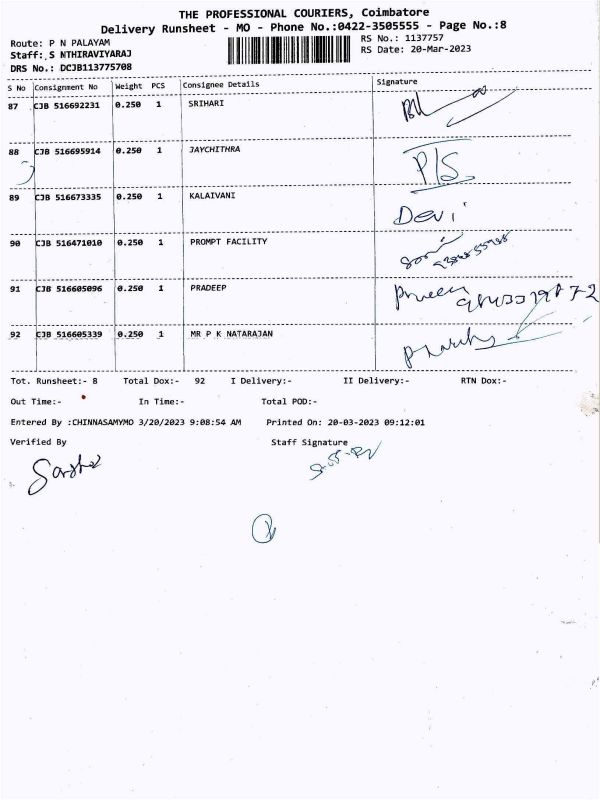 THE PROFESSIONAL COURIERS, Coimbatore
Delivery Runsheet - MO - Phone No.:0422-3505555 - Page No.:8
Route: P N PALAYAM
RS No.: 1137757
Staff: S NTHIRAVIYARAJ
RS Date: 20-Mar-2023
DRS No.: DCJB113775708
S No Consignment No Weight PCS Consignee Details Signature
87 CJB 516692231 0.250 1 SRIHARI
88 CJB 516695914 0.250 1 JAYCHITHRA P/S
89 CJB 516673335 0.250 1 KALAIVANI Devi
90 CJB 516471010 0.250 1 PROMPT FACILITY
91 CJB 516605096 0.250 1 PRADEEP
92 CJB 516605339 0.250 1 MR P K NATARAJAN
Tot. Runsheet:- 8 Total Dox:- 92 I Delivery:- II Delivery:- RTN Dox:-
Out Time:- In Time:- Total POD:-
Entered By :CHINNASAMYMO 3/20/2023 9:08:54 AM Printed On: 20-03-2023 09:12:01
Verified By Staff Signature